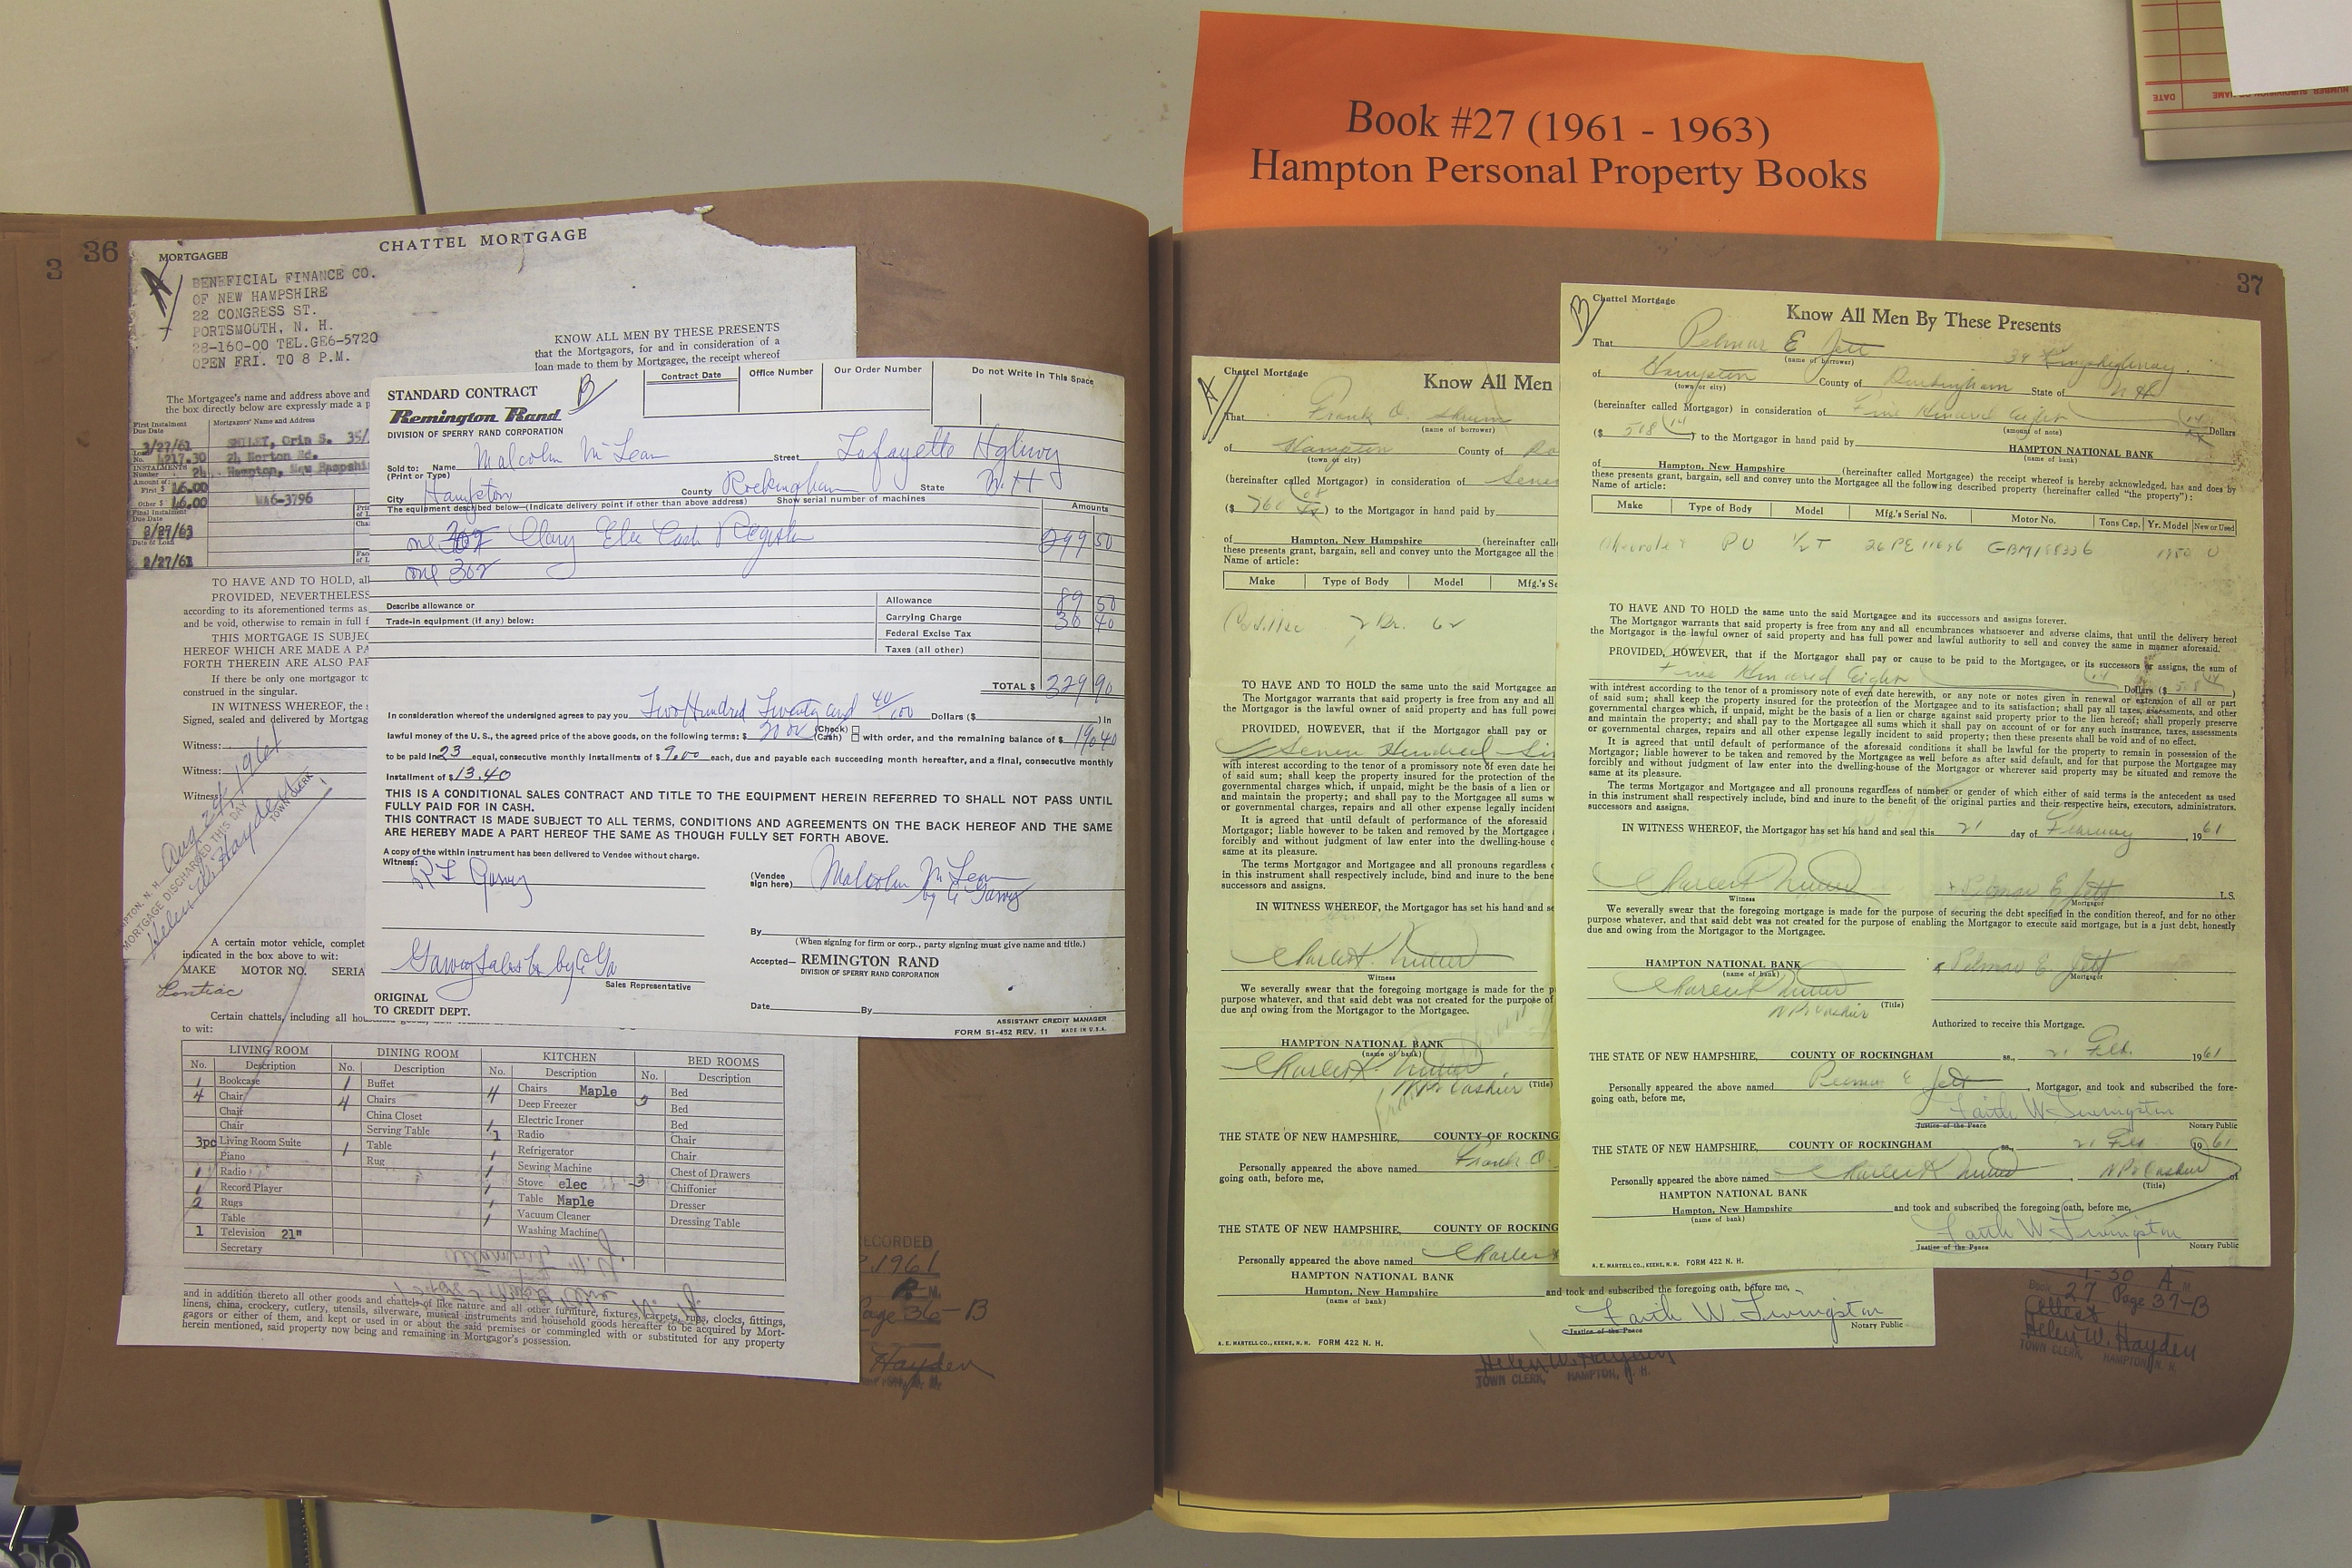 Book #27 (1961 - 1963)
Hampton Personal Property Books
DATE
36
3
CHATTEL MORTGAGE
MORTGAGEE
A
BENEFICIAL FINANCE CO.
OF NEW HAMPSHIRE
22 CONGRESS ST.
PORTSMOUTH, N. H.
28-160-00 TEL.GE6-5720
OPEN FRI. TO 8 P.M.
KNOW ALL MEN BY THESE PRESENTS
that the Mortgagors, for and in consideration of a
loan made to them by Mortgagee, the receipt whereof
The Mortgagee's name and address above and
the box directly below are expressly made a p
First Instalment
Due Date
Mortgagors' Name and Address
3/27/61
SMILEY, Orin S. 35/
4217.30
24 Norton Rd.
INSTALMENTS
Number 24
Hampton, New Hampshi
Amount of:
First $ 16.00
Other $ 16.00
WA6-3796
Final Instalment
Due Date
2/27/63
Date of Loan
2/27/61
TO HAVE AND TO HOLD, all
PROVIDED, NEVERTHELESS
according to its aforementioned terms as
and be void, otherwise to remain in full f
THIS MORTGAGE IS SUBJEC
HEREOF WHICH ARE MADE A PA
FORTH THEREIN ARE ALSO PAR
If there be only one mortgagor to
construed in the singular.
IN WITNESS WHEREOF, the
Signed, sealed and delivered by Mortgag
Witness:
Witness:
Witness
Aug 24, 1961
MORTGAGE DISCHARGED THIS DAY
Helen W. Hayden
TOWN CLERK
A certain motor vehicle, complet
indicated in the box above to wit:
MAKE MOTOR NO. SERIA
Pontiac
Certain chattels, including all hou
to wit:
LIVING ROOM DINING ROOM KITCHEN BED ROOMS
No. Description No. Description No. Description No. Description
1 Bookcase 1 Buffet 4 Chairs Maple Bed
4 Chair 4 Chairs Deep Freezer Bed
Chair China Closet Electric Ironer Bed
Chair Serving Table 1 Radio Chair
3pc Living Room Suite 1 Table 1 Refrigerator Chair
Piano Rug 1 Sewing Machine Chest of Drawers
1 Radio 1 Stove elec 3 Chiffonier
1 Record Player 1 Table Maple Dresser
2 Rugs 1 Vacuum Cleaner Dressing Table
Table Washing Machine
1 Television 21"
Secretary
and in addition thereto all other goods and chattels of like nature and all other furniture, fixtures, carpets, rugs, clocks, fittings,
linens, china, crockery, cutlery, utensils, silverware, musical instruments and household goods hereafter to be acquired by Mort-
gagors or either of them, and kept or used in or about the said premises or commingled with or substituted for any property
herein mentioned, said property now being and remaining in Mortgagor's possession.
ECORDED
1961
P. M.
age 36-B
Hayden
STANDARD CONTRACT
B
Remington Rand
DIVISION OF SPERRY RAND CORPORATION
Contract Date Office Number Our Order Number Do not Write In This Space
Sold to: Name Malcolm McLean Street Lafayette Hghwy
(Print or Type)
City Hampton County Rockingham State N.H
The equipment described below—(Indicate delivery point if other than above address) Show serial number of machines Amounts
one Clary Elec Cash Register 299 50
one 302
Describe allowance or
Trade-in equipment (if any) below:
Allowance 89 50
Carrying Charge 30 40
Federal Excise Tax
Taxes (all other)
TOTAL $ 329 90
In consideration whereof the undersigned agrees to pay you Two Hundred Twenty and 40/100 Dollars ($ ) in
lawful money of the U.S., the agreed price of the above goods, on the following terms: $ 20 00 (Check) (Cash) with order, and the remaining balance of $
to be paid in 23 equal, consecutive monthly installments of $ 9.00 each, due and payable each succeeding month hereafter, and a final, consecutive monthly
installment of $ 13.40
THIS IS A CONDITIONAL SALES CONTRACT AND TITLE TO THE EQUIPMENT HEREIN REFERRED TO SHALL NOT PASS UNTIL
FULLY PAID FOR IN CASH.
THIS CONTRACT IS MADE SUBJECT TO ALL TERMS, CONDITIONS AND AGREEMENTS ON THE BACK HEREOF AND THE SAME
ARE HEREBY MADE A PART HEREOF THE SAME AS THOUGH FULLY SET FORTH ABOVE.
A copy of the within instrument has been delivered to Vendee without charge.
Witness:
(Vendee
sign here) Malcolm McLean
By
(When signing for firm or corp., party signing must give name and title.)
Sales Representative
Accepted— REMINGTON RAND
DIVISION OF SPERRY RAND CORPORATION
ORIGINAL
TO CREDIT DEPT.
Date By
ASSISTANT CREDIT MANAGER
FORM S1-452 REV. 11 MADE IN U.S.A.
A
Chattel Mortgage
Know All Men
That Frank O.
(name of borrower)
of Hampton County of
(town or city)
(hereinafter called Mortgagor) in consideration of
($ ) to the Mortgagor in hand paid by
of Hampton, New Hampshire (hereinafter call
these presents grant, bargain, sell and convey unto the Mortgagee all the
Name of article:
Make Type of Body Model Mfg.'s Se
2 Dr. 62
TO HAVE AND TO HOLD the same unto the said Mortgagee an
The Mortgagor warrants that said property is free from any and all
the Mortgagor is the lawful owner of said property and has full powe
PROVIDED, HOWEVER, that if the Mortgagor shall pay or
Seven Hundred Si
with interest according to the tenor of a promissory note of even date he
of said sum; shall keep the property insured for the protection of the
governmental charges which, if unpaid, might be the basis of a lien or
and maintain the property; and shall pay to the Mortgagee all sums w
or governmental charges, repairs and all other expense legally incident
It is agreed that until default of performance of the aforesaid
Mortgagor; liable however to be taken and removed by the Mortgagee
forcibly and without judgment of law enter into the dwelling-house
same at its pleasure.
The terms Mortgagor and Mortgagee and all pronouns regardless
in this instrument shall respectively include, bind and inure to the bene
successors and assigns.
IN WITNESS WHEREOF, the Mortgagor has set his hand and se
Witness
We severally swear that the foregoing mortgage is made for the p
purpose whatever, and that said debt was not created for the purpose of
due and owing from the Mortgagor to the Mortgagee.
HAMPTON NATIONAL BANK
(name of bank)
Cashier (Title)
THE STATE OF NEW HAMPSHIRE, COUNTY OF ROCKING
Personally appeared the above named Frank O.
going oath, before me,
THE STATE OF NEW HAMPSHIRE, COUNTY OF ROCKING
Personally appeared the above named Charles
HAMPTON NATIONAL BANK
Hampton, New Hampshire and took and subscribed the foregoing oath, before me,
(name of bank)
Faith W Livingston
Justice of the Peace Notary Public
A. E. MARTELL CO., KEENE, N. H. FORM 422 N. H.
Helen W. Hayden
TOWN CLERK, HAMPTON, N. H.
37
B
Chattel Mortgage
Know All Men By These Presents
That Pelmar E Jett 34 Kingshighway
(name of borrower)
of Hampton County of Rockingham State of N H
(town or city)
(hereinafter called Mortgagor) in consideration of Five Hundred Eight 14 Dollars
(amount of note)
($ 508 14 ) to the Mortgagor in hand paid by HAMPTON NATIONAL BANK
(name of bank)
of Hampton, New Hampshire (hereinafter called Mortgagee) the receipt whereof is hereby acknowledged, has and does by
these presents grant, bargain, sell and convey unto the Mortgagee all the following described property (hereinafter called "the property"):
Name of article:
Make Type of Body Model Mfg.'s Serial No. Motor No. Tons Cap. Yr. Model New or Used
Chevrolet PU 1/2 T 1950 U
TO HAVE AND TO HOLD the same unto the said Mortgagee and its successors and assigns forever.
The Mortgagor warrants that said property is free from any and all encumbrances whatsoever and adverse claims, that until the delivery hereof
the Mortgagor is the lawful owner of said property and has full power and lawful authority to sell and convey the same in manner aforesaid.
PROVIDED, HOWEVER, that if the Mortgagor shall pay or cause to be paid to the Mortgagee, or its successors or assigns, the sum of
Five Hundred Eight 14 Dollars ($ 508 14 )
with interest according to the tenor of a promissory note of even date herewith, or any note or notes given in renewal or extension of all or part
of said sum; shall keep the property insured for the protection of the Mortgagee and to its satisfaction; shall pay all taxes, assessments, and other
governmental charges which, if unpaid, might be the basis of a lien or charge against said property prior to the lien hereof; shall properly preserve
and maintain the property; and shall pay to the Mortgagee all sums which it shall pay on account of or for any such insurance, taxes, assessments
or governmental charges, repairs and all other expense legally incident to said property; then these presents shall be void and of no effect.
It is agreed that until default of performance of the aforesaid conditions it shall be lawful for the property to remain in possession of the
Mortgagor; liable however to be taken and removed by the Mortgagee as well before as after said default, and for that purpose the Mortgagee may
forcibly and without judgment of law enter into the dwelling-house of the Mortgagor or wherever said property may be situated and remove the
same at its pleasure.
The terms Mortgagor and Mortgagee and all pronouns regardless of number or gender of which either of said terms is the antecedent as used
in this instrument shall respectively include, bind and inure to the benefit of the original parties and their respective heirs, executors, administrators,
successors and assigns.
IN WITNESS WHEREOF, the Mortgagor has set his hand and seal this 21 day of February, 1961
Pelmar E Jett L.S.
Witness Mortgagor
We severally swear that the foregoing mortgage is made for the purpose of securing the debt specified in the condition thereof, and for no other
purpose whatever, and that said debt was not created for the purpose of enabling the Mortgagor to execute said mortgage, but is a just debt, honestly
due and owing from the Mortgagor to the Mortgagee.
HAMPTON NATIONAL BANK Pelmar E. Jett
(name of bank) Mortgagor
Cashier (Title)
Authorized to receive this Mortgage.
THE STATE OF NEW HAMPSHIRE, COUNTY OF ROCKINGHAM ss., 21 Feb. 1961
Personally appeared the above named Pelmar E Jett, Mortgagor, and took and subscribed the fore-
going oath, before me,
Faith W Livingston
Justice of the Peace Notary Public
THE STATE OF NEW HAMPSHIRE, COUNTY OF ROCKINGHAM ss., 21 Feb 1961
Personally appeared the above named , Cashier of
(Title)
HAMPTON NATIONAL BANK
Hampton, New Hampshire and took and subscribed the foregoing oath, before me,
(name of bank)
Faith W Livingston
Justice of the Peace Notary Public
A. E. MARTELL CO., KEENE, N. H. FORM 422 N. H.
-30 A M
Book 27 Page 37-B
Attest
Helen W. Hayden
TOWN CLERK, HAMPTON, N. H.